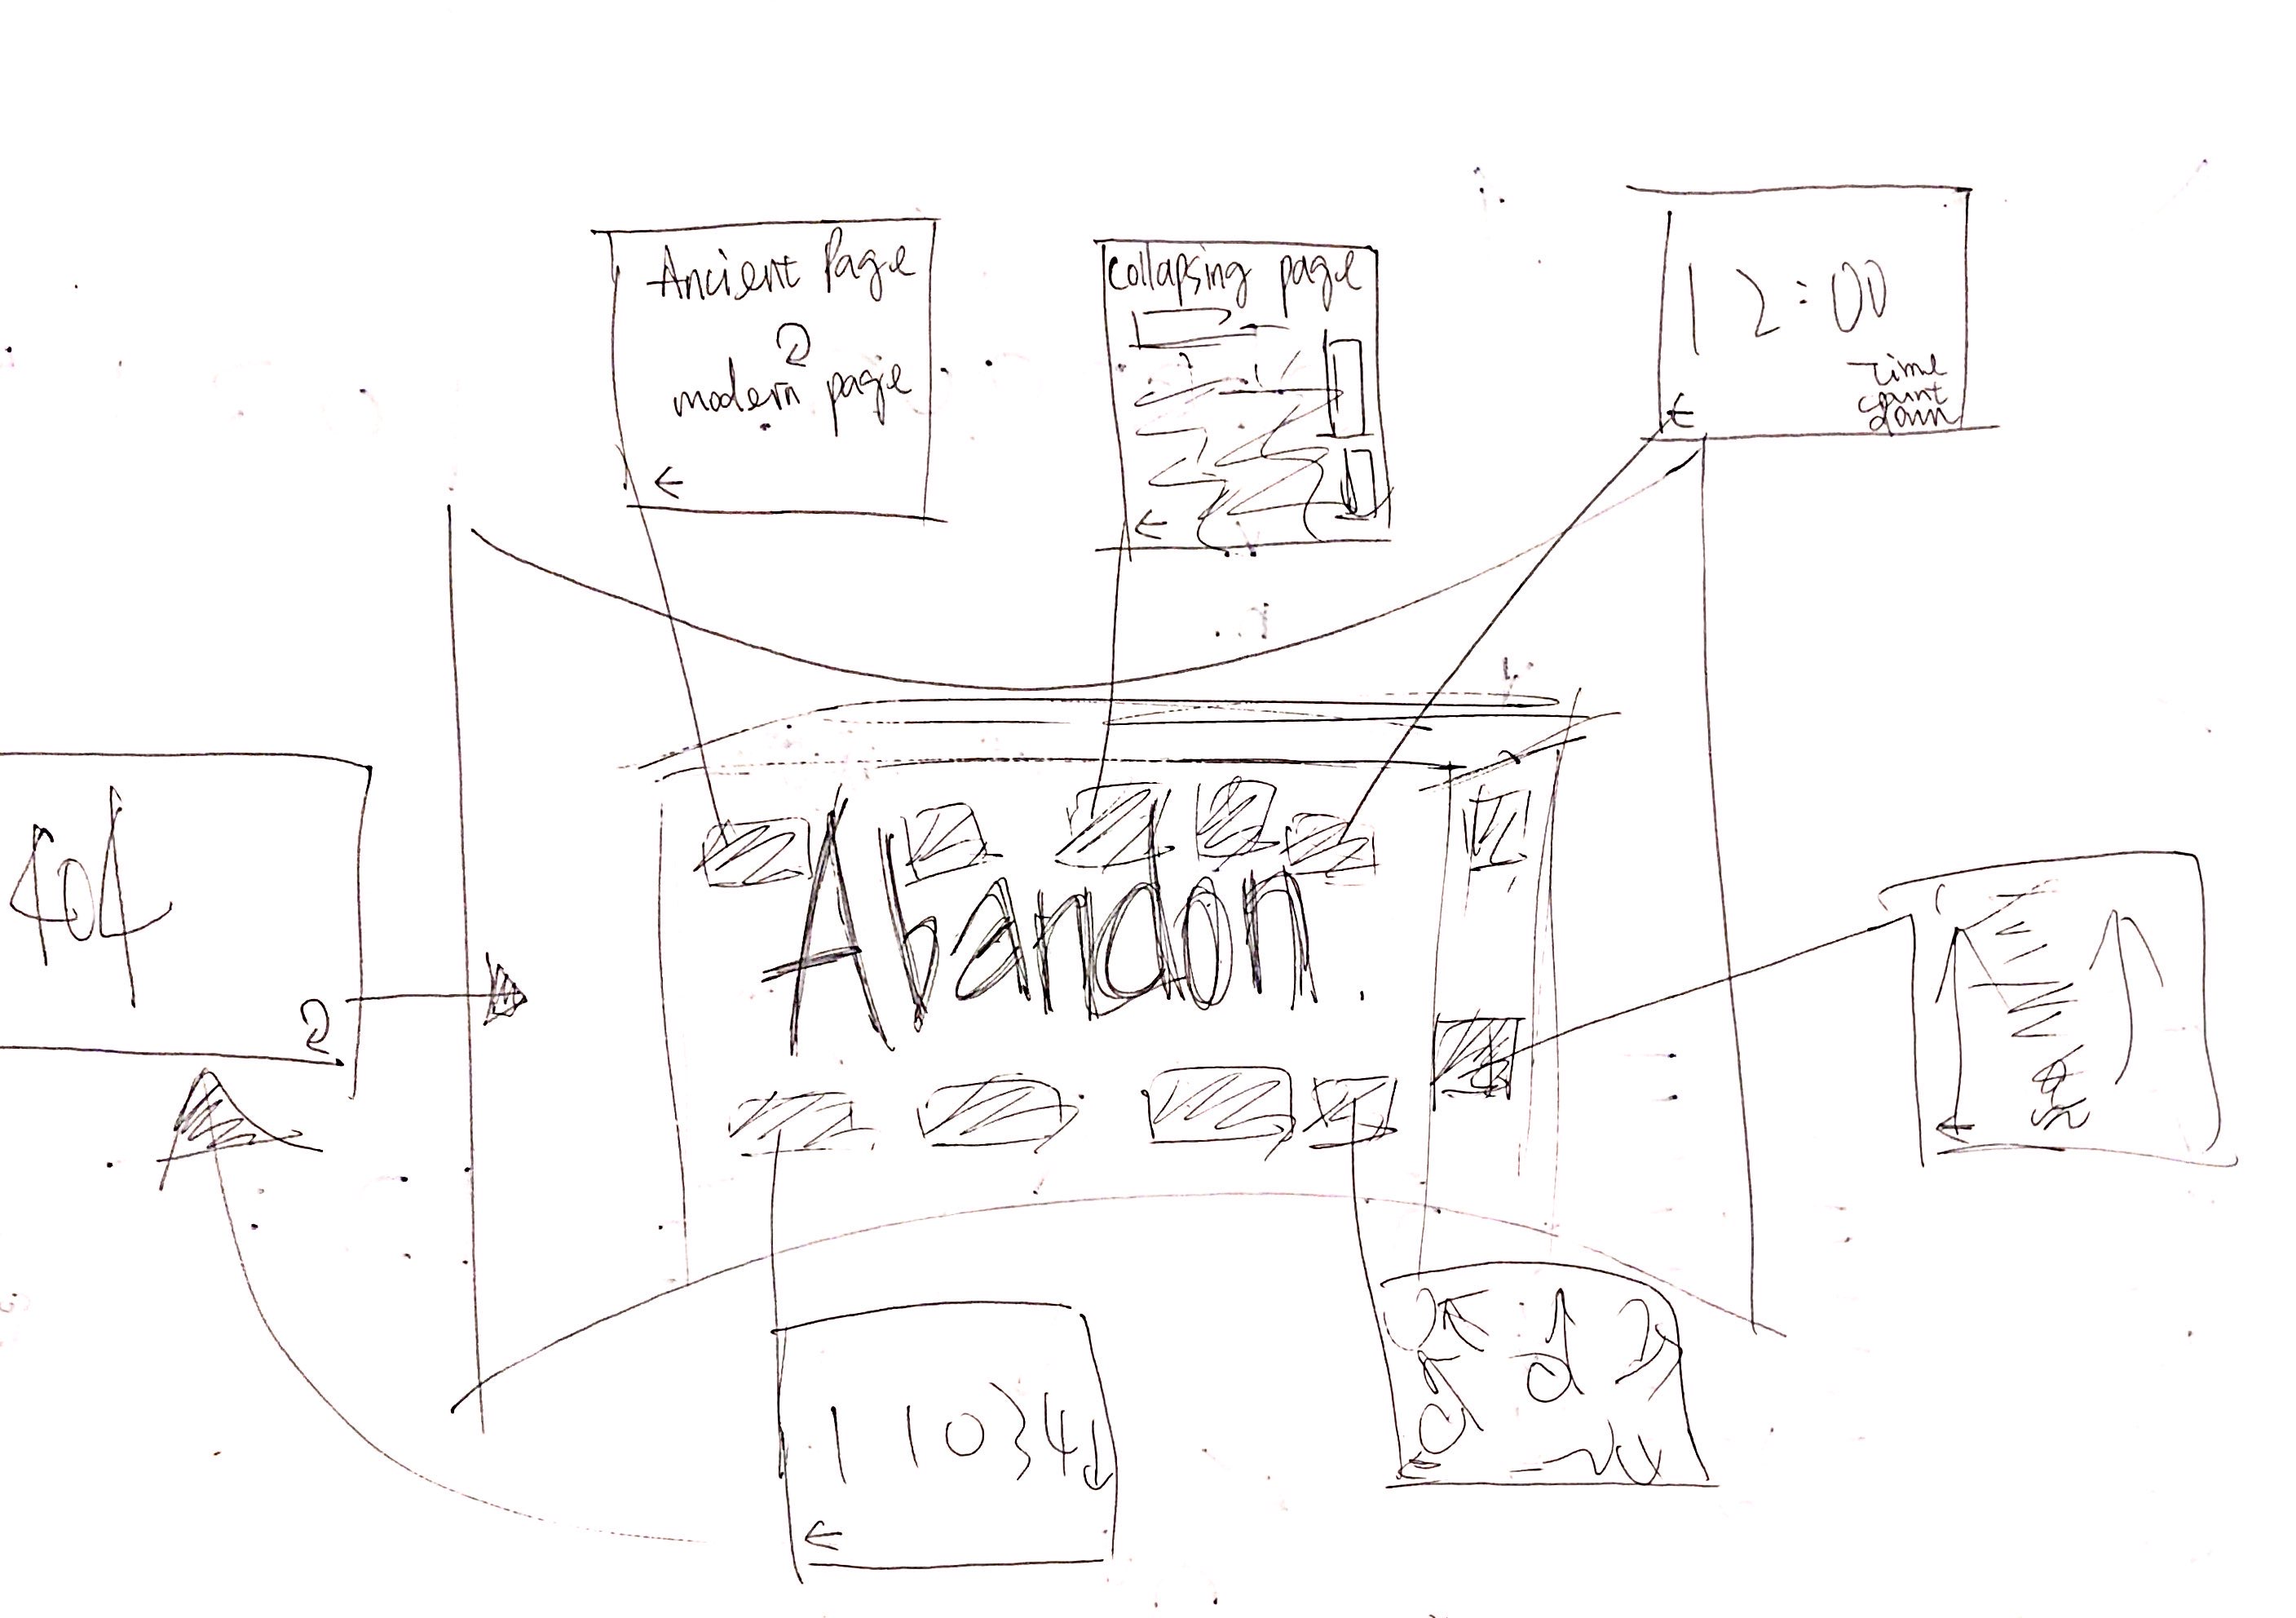 Ancient Page
modern page
collapsing page
12:00
Time
count
down
404
Abandon.